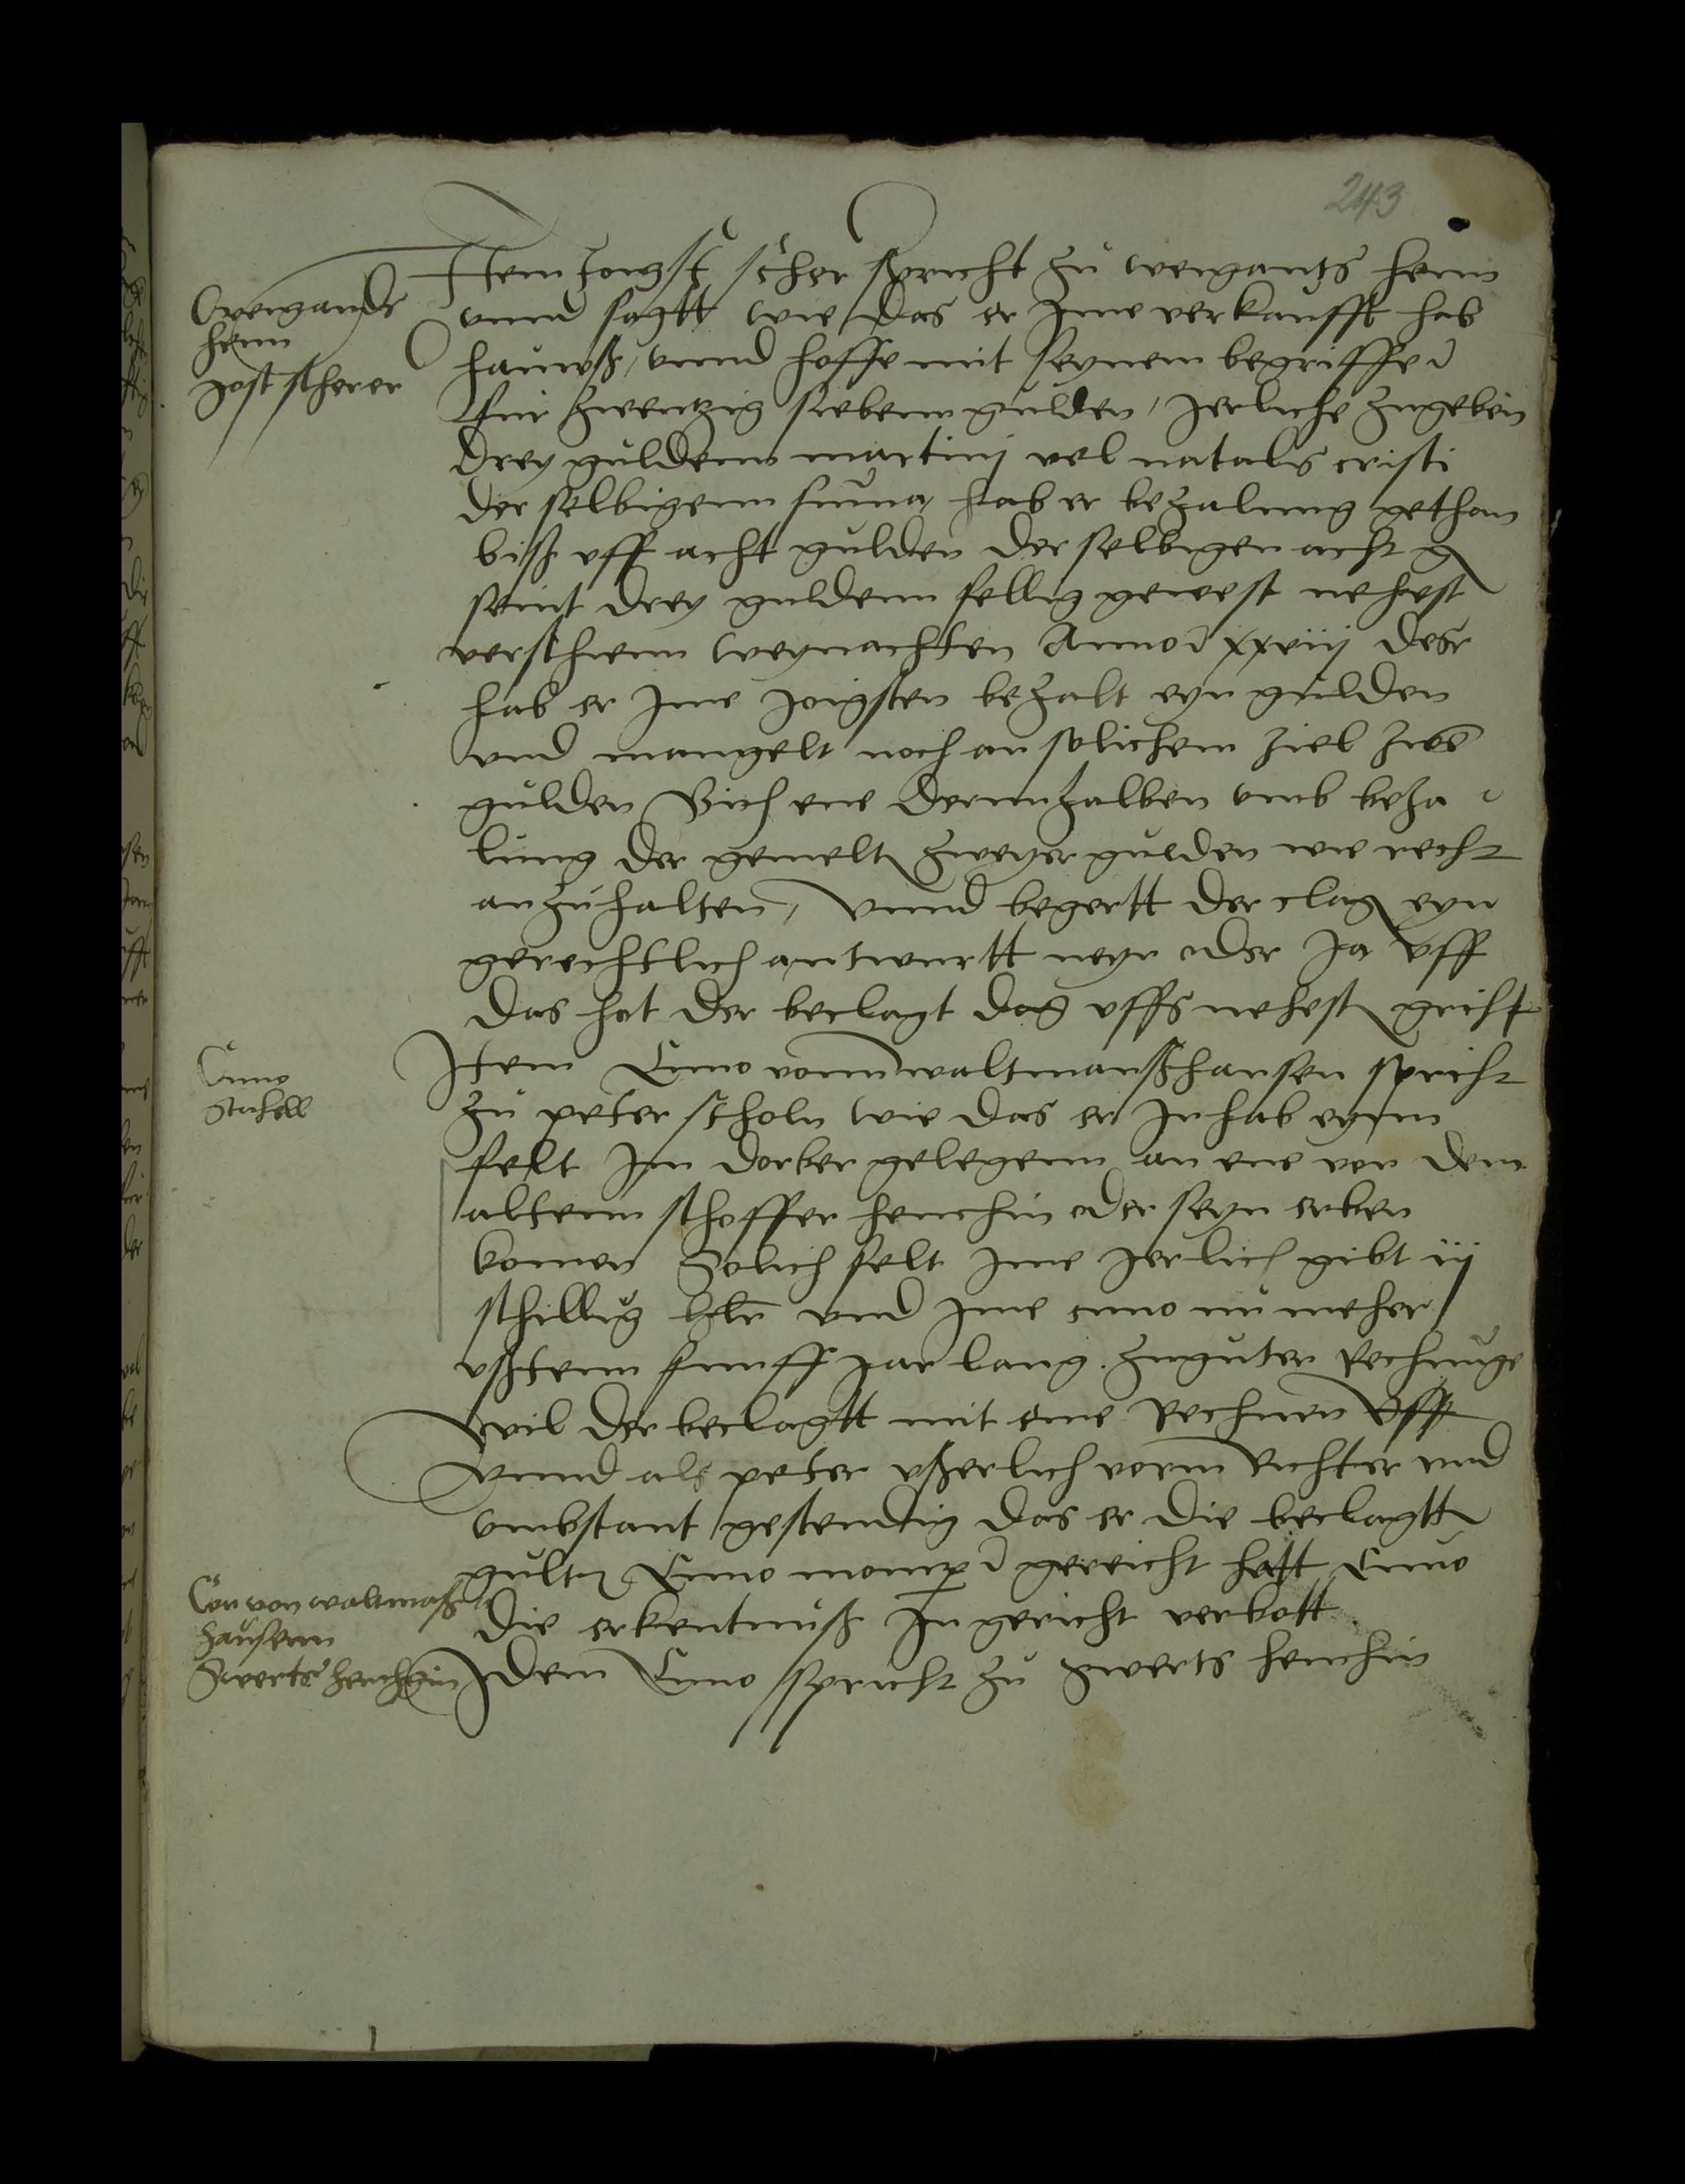 243
Item Joigst scher spricht zu weigants henn
weigands
henn
Jost scherer
vnnd sagtt wie das er Ime verkaufft hab
hauwß, vnnd hoffe mit seynem begriffe
fur zwentzig siebenn gulden, Jerliche zugeben
drey guldenn martinj vel natalis cristi
der selbigenn suma hab er bezalung gethan
biß vff acht gulden der selbigen acht g
seint drey guldenn fellig gewest nehest
verschienn weynachten Anno xxviij desr
hab er Ime Joigsten bezalt eyn gulden
vnd mangelt noch an solichem ziel zwē
gulden Bith ene dernnhalben vmb beza
lung der gemelt zweyer gulden wie recht
anzuhalten, vnnd begertt der clag eyn
gerechtlich antwurtt neyn oder Ja vff
das hat der beclagt dag vffs nehest gricht
Item Cuno vonn waltmanßhausen spricht
Cuno
zu peter scholn wie das er In hab eynn
felt Inn dorber gelegenn an ene von dem
altenn schoffer henchin oder seyn erben
komen Solich felt Ime Jerlich gibt iij
schillig hlr vnd Ime cuno nu meher
vßstenn funff Jar lang. zuguter Rechnuge
wil der beclagtt mit eme Rechnen vff
vnnd als peter vßerlich vorm Richter vnd
vmbstant gestendig das er die beclagtt
gult Cuno momp gereicht hatt Cuno
die erkentnuß In gericht verbott
Con von waltmaß
hausenn
Swerts henchgin
Idem Cuno spricht zu Swerts henchin